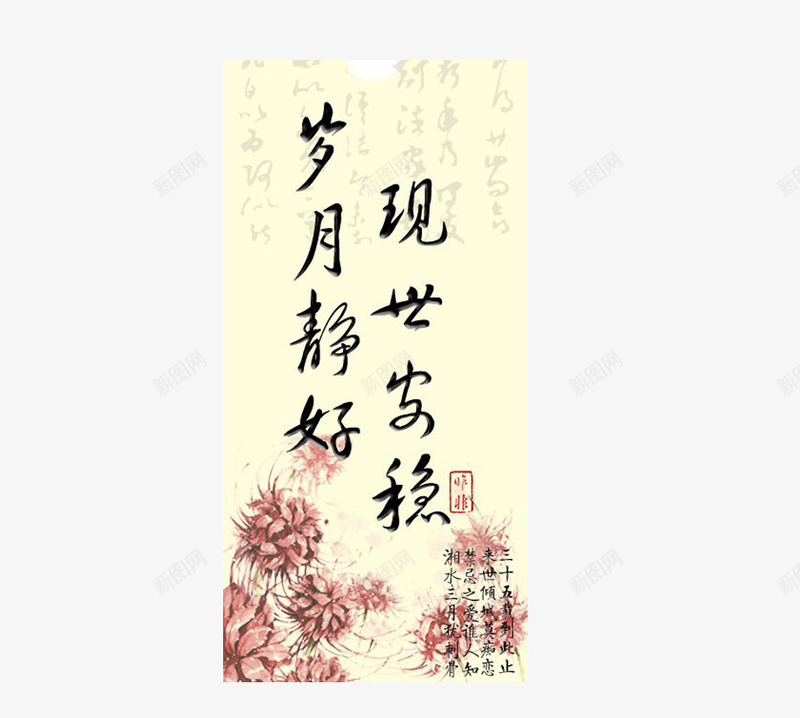 岁月静好
现世安稳
昨非
三十五载到此止
来世倾城莫痴恋
禁忌之爱谁人知
湘水三月犹刺骨
新图网